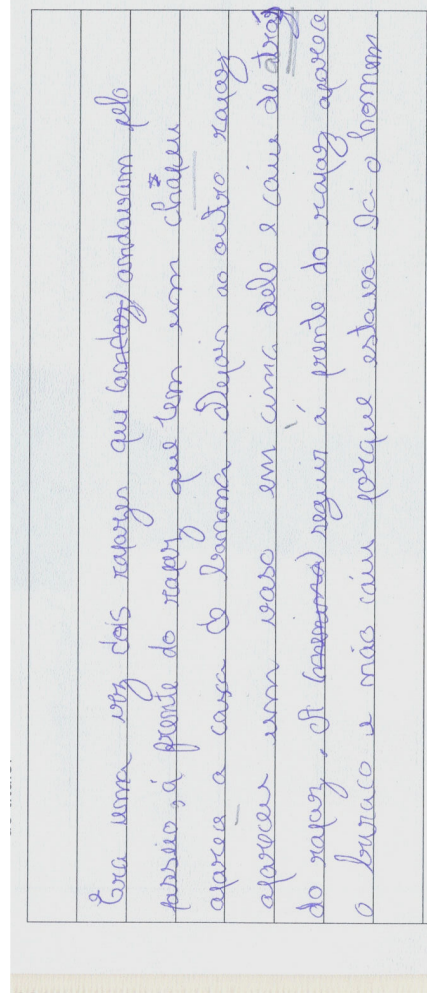 Era uma vez dois rapazes que (andaz) andavam pelo
passeio, á frente do rapaz que tem um chapeu
aparece a casca de banana. Depois ao outro rapaz
apareceu um vaso em cima dele e caiu de atrás
do rapaz. A (menina) seguir á frente do rapaz aparece
o buraco e não caiu porque estava lá o homem.